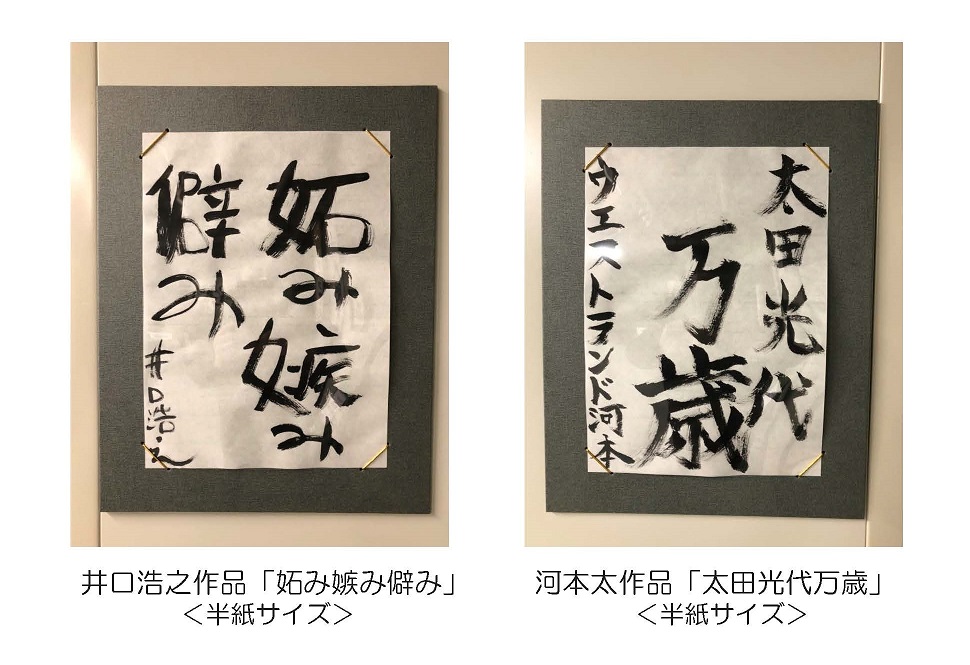 妬み嫉み
僻み
井口浩之
太田光代
万歳
ウエストランド河本
井口浩之作品「妬み嫉み僻み」
＜半紙サイズ＞
河本太作品「太田光代万歳」
＜半紙サイズ＞